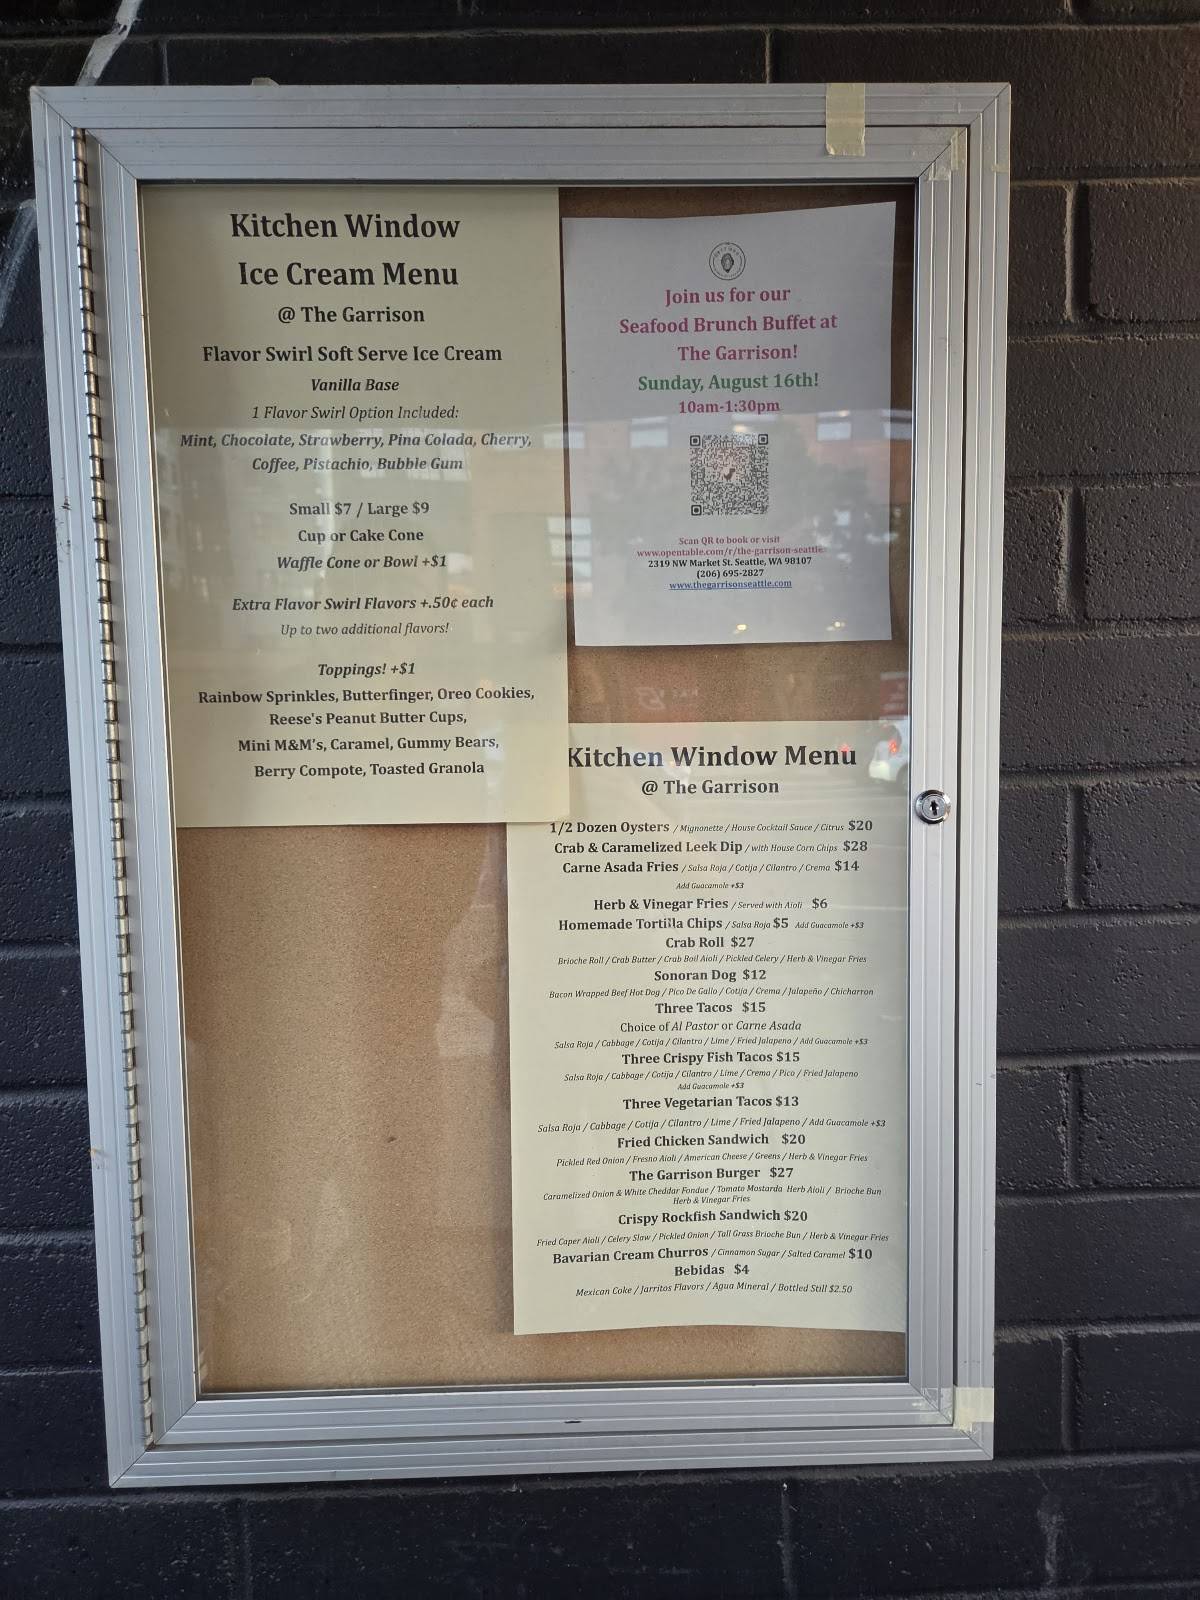 Kitchen Window
Ice Cream Menu
@ The Garrison
Flavor Swirl Soft Serve Ice Cream
Vanilla Base
1 Flavor Swirl Option Included:
Mint, Chocolate, Strawberry, Pina Colada, Cherry,
Coffee, Pistachio, Bubble Gum
Small $7 / Large $9
Cup or Cake Cone
Waffle Cone or Bowl +$1
Extra Flavor Swirl Flavors +.50¢ each
Up to two additional flavors!
Toppings! +$1
Rainbow Sprinkles, Butterfinger, Oreo Cookies,
Reese's Peanut Butter Cups,
Mini M&M's, Caramel, Gummy Bears,
Berry Compote, Toasted Granola
Join us for our
Seafood Brunch Buffet at
The Garrison!
Sunday, August 16th!
10am-1:30pm
Scan QR to book or visit
www.opentable.com/r/the-garrison-seattle
2319 NW Market St. Seattle, WA 98107
(206) 695-2827
www.thegarrisonseattle.com
Kitchen Window Menu
@ The Garrison
1/2 Dozen Oysters / Mignonette / House Cocktail Sauce / Citrus $20
Crab & Caramelized Leek Dip / with House Corn Chips $28
Carne Asada Fries / Salsa Roja / Cotija / Cilantro / Crema $14
Add Guacamole +$3
Herb & Vinegar Fries / Served with Aioli $6
Homemade Tortilla Chips / Salsa Roja $5 Add Guacamole +$3
Crab Roll $27
Brioche Roll / Crab Butter / Crab Boil Aioli / Pickled Celery / Herb & Vinegar Fries
Sonoran Dog $12
Bacon Wrapped Beef Hot Dog / Pico De Gallo / Cotija / Crema / Jalapeño / Chicharron
Three Tacos $15
Choice of Al Pastor or Carne Asada
Salsa Roja / Cabbage / Cotija / Cilantro / Lime / Fried Jalapeno / Add Guacamole +$3
Three Crispy Fish Tacos $15
Salsa Roja / Cabbage / Cotija / Cilantro / Lime / Crema / Pico / Fried Jalapeno
Add Guacamole +$3
Three Vegetarian Tacos $13
Salsa Roja / Cabbage / Cotija / Cilantro / Lime / Fried Jalapeno / Add Guacamole +$3
Fried Chicken Sandwich $20
Pickled Red Onion / Fresno Aioli / American Cheese / Greens / Herb & Vinegar Fries
The Garrison Burger $27
Caramelized Onion & White Cheddar Fondue / Tomato Mostarda Herb Aioli / Brioche Bun
Herb & Vinegar Fries
Crispy Rockfish Sandwich $20
Fried Caper Aioli / Celery Slaw / Pickled Onion / Tall Grass Brioche Bun / Herb & Vinegar Fries
Bavarian Cream Churros / Cinnamon Sugar / Salted Caramel $10
Bebidas $4
Mexican Coke / Jarritos Flavors / Agua Mineral / Bottled Still $2.50